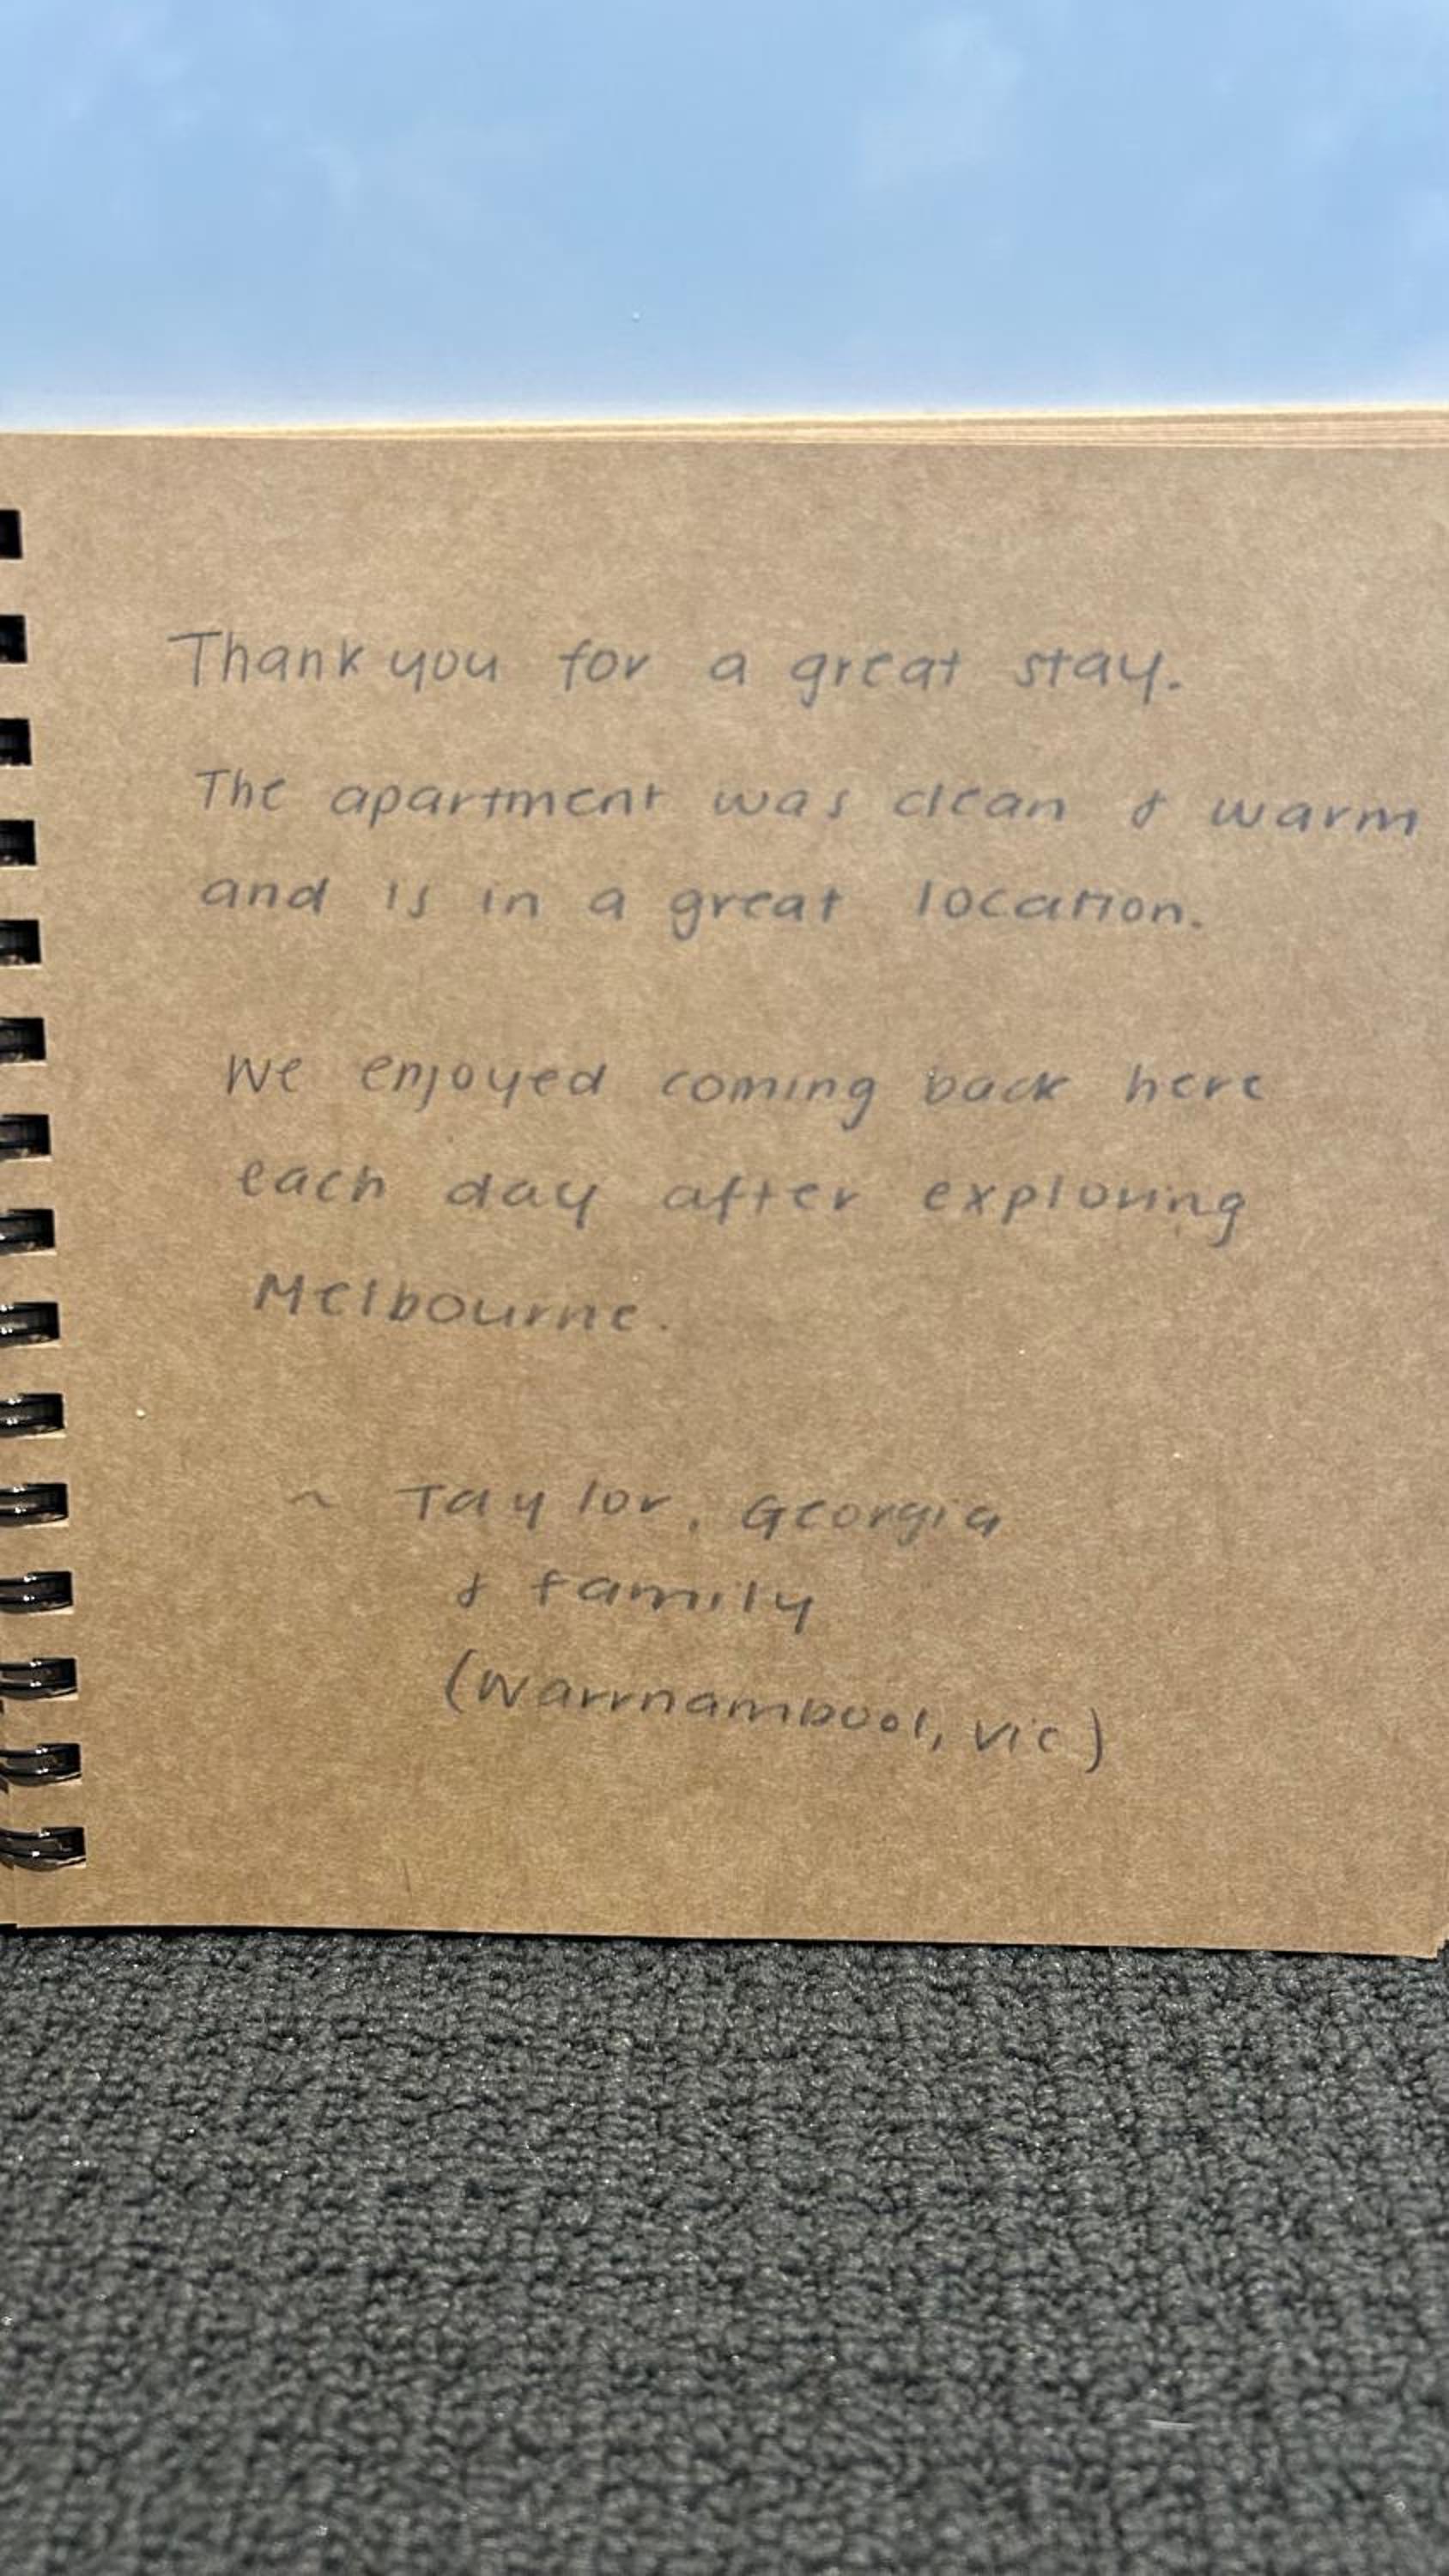 Thank you for a great stay.
The apartment was clean & warm
and is in a great location.
We enjoyed coming back here
each day after exploring
Melbourne.
~ Taylor, Georgia
& family
(Warrnambool, Vic)